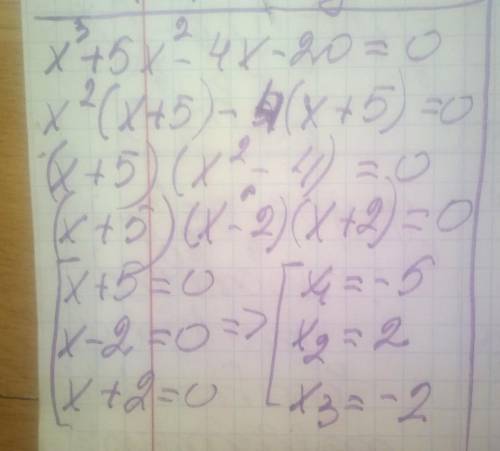 x³+5x²-4x-20=0
x²(x+5)-4(x+5)=0
(x+5)(x²-4)=0
(x+5)(x-2)(x+2)=0
[x+5=0 [x₁=-5
x-2=0 => x₂=2
x+2=0 x₃=-2